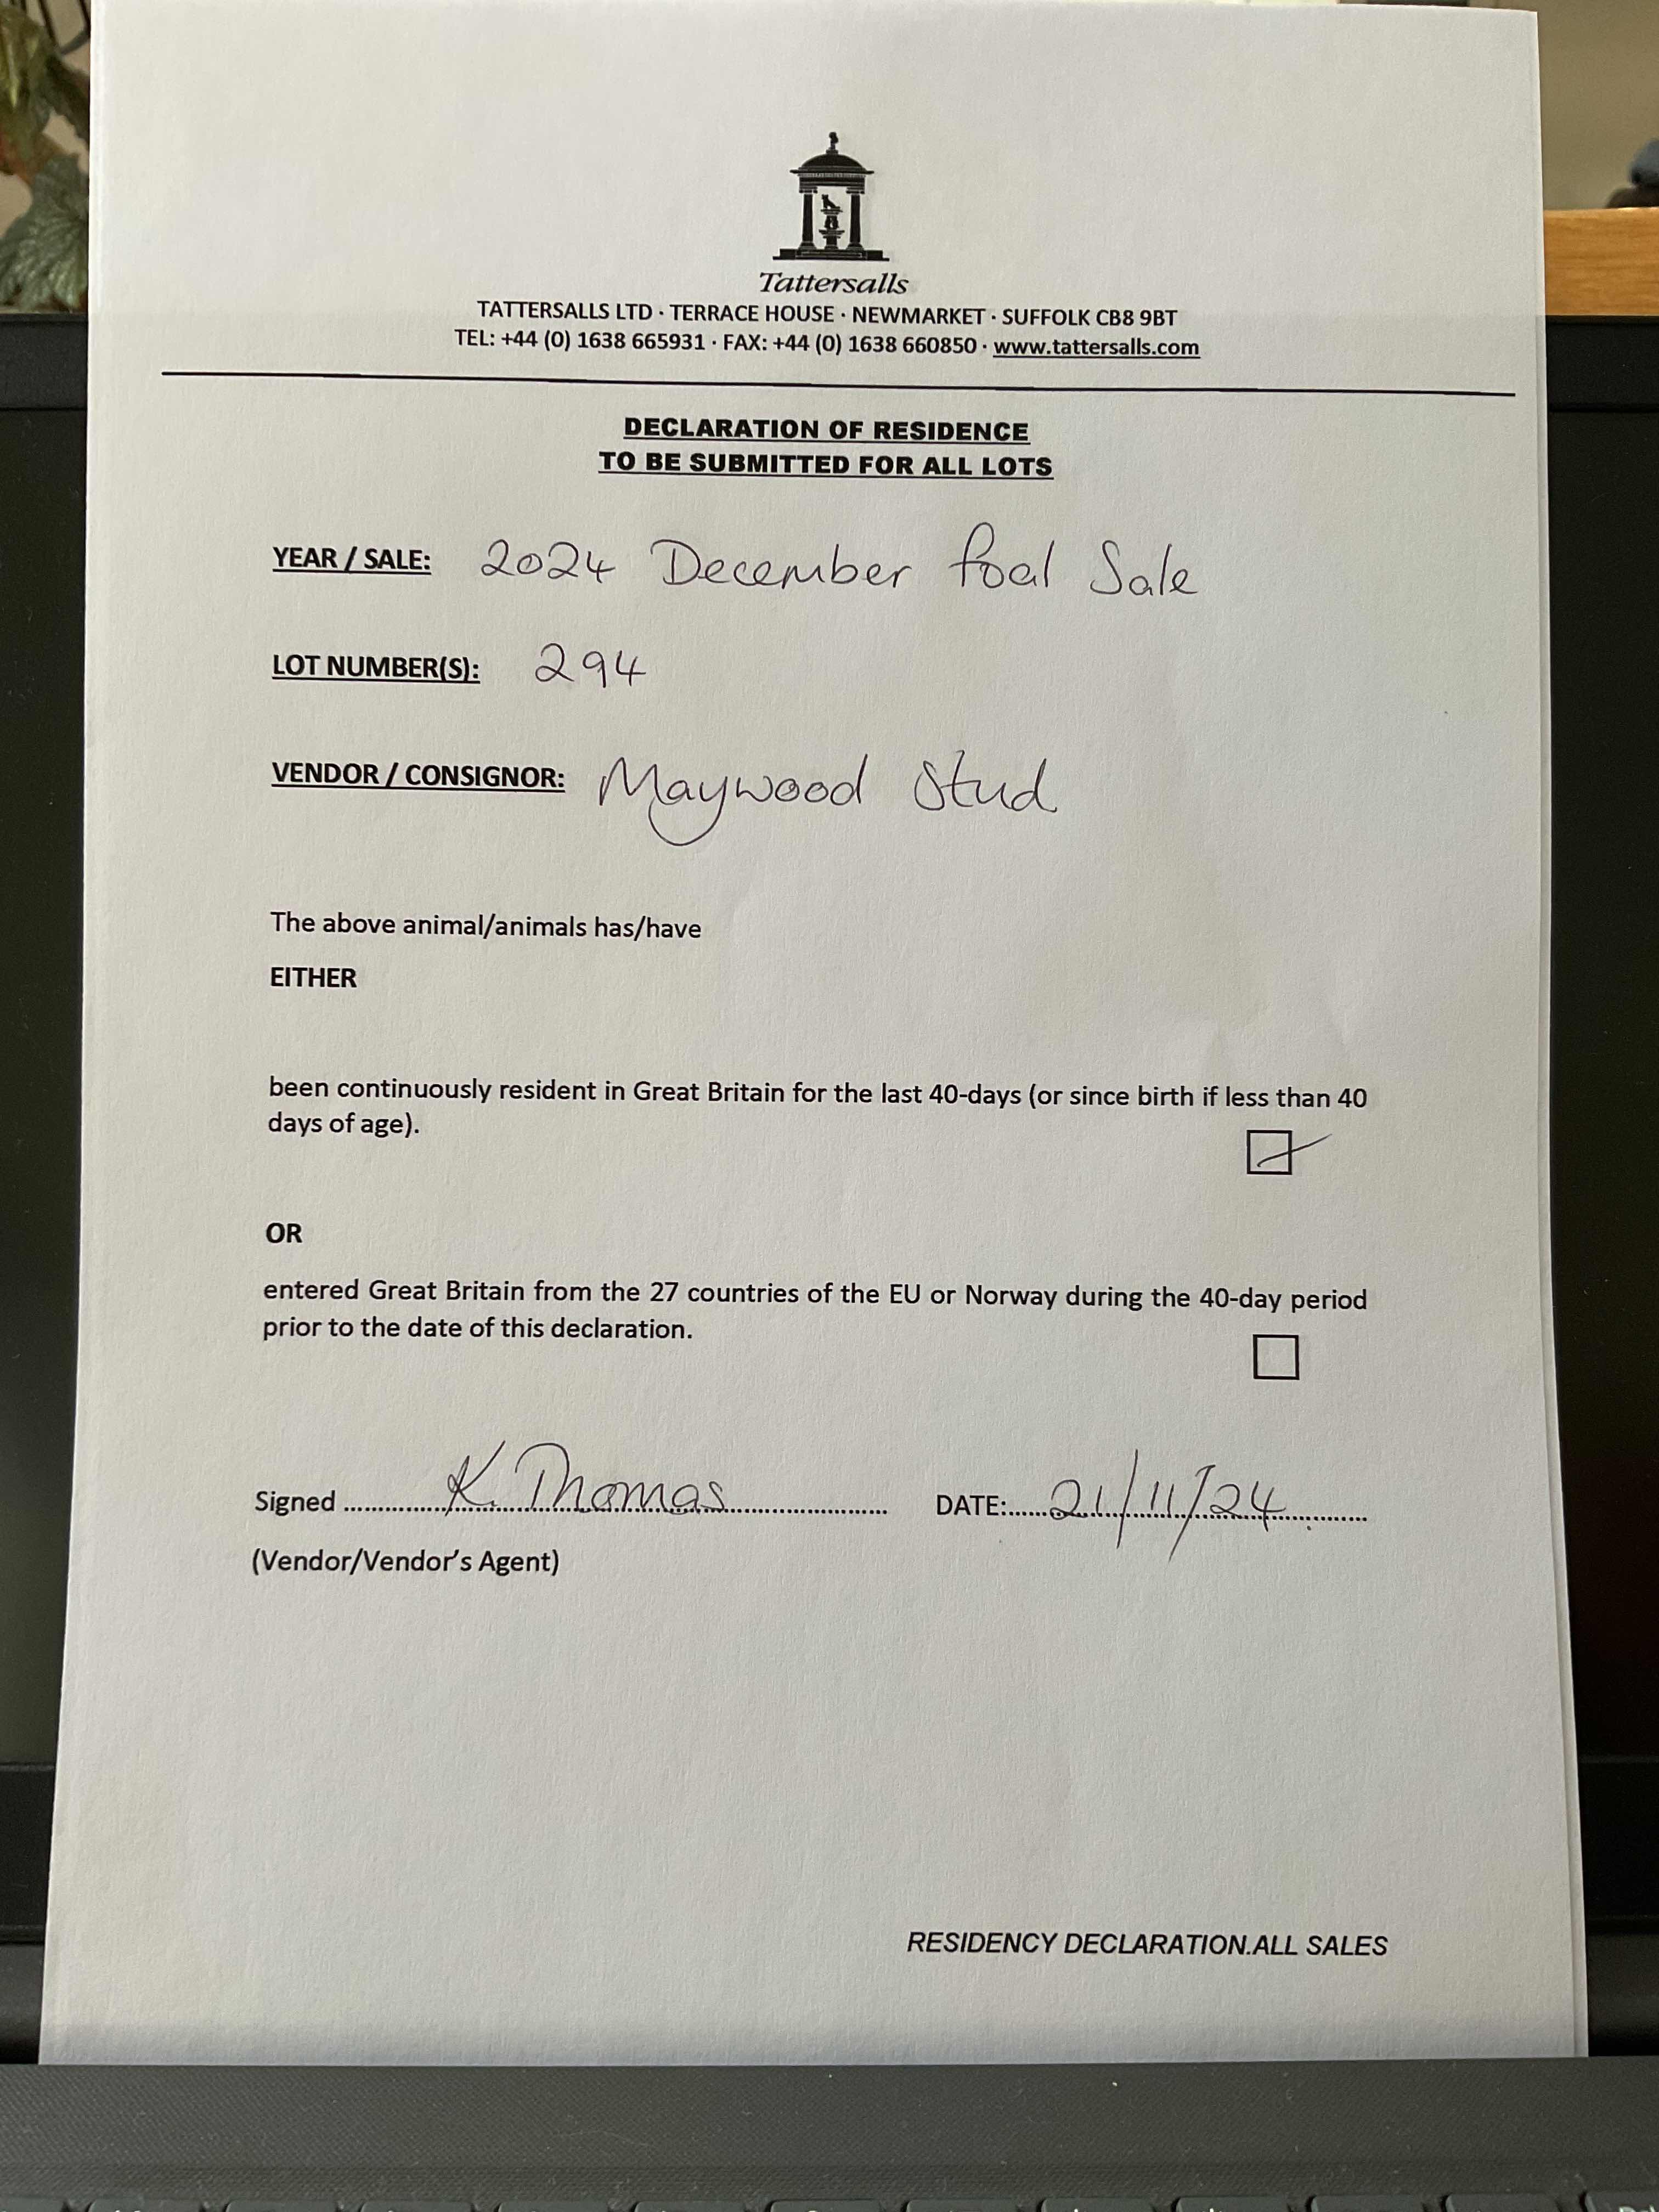 Tattersalls
TATTERSALLS LTD · TERRACE HOUSE · NEWMARKET · SUFFOLK CB8 9BT
TEL: +44 (0) 1638 665931 · FAX: +44 (0) 1638 660850 · www.tattersalls.com
DECLARATION OF RESIDENCE
TO BE SUBMITTED FOR ALL LOTS
YEAR / SALE: 2024 December foal Sale
LOT NUMBER(S): 294
VENDOR / CONSIGNOR: Maywood Stud
The above animal/animals has/have
EITHER
been continuously resident in Great Britain for the last 40-days (or since birth if less than 40
days of age).
OR
entered Great Britain from the 27 countries of the EU or Norway during the 40-day period
prior to the date of this declaration.
Signed K. Thomas DATE: 21/11/24
(Vendor/Vendor's Agent)
RESIDENCY DECLARATION.ALL SALES